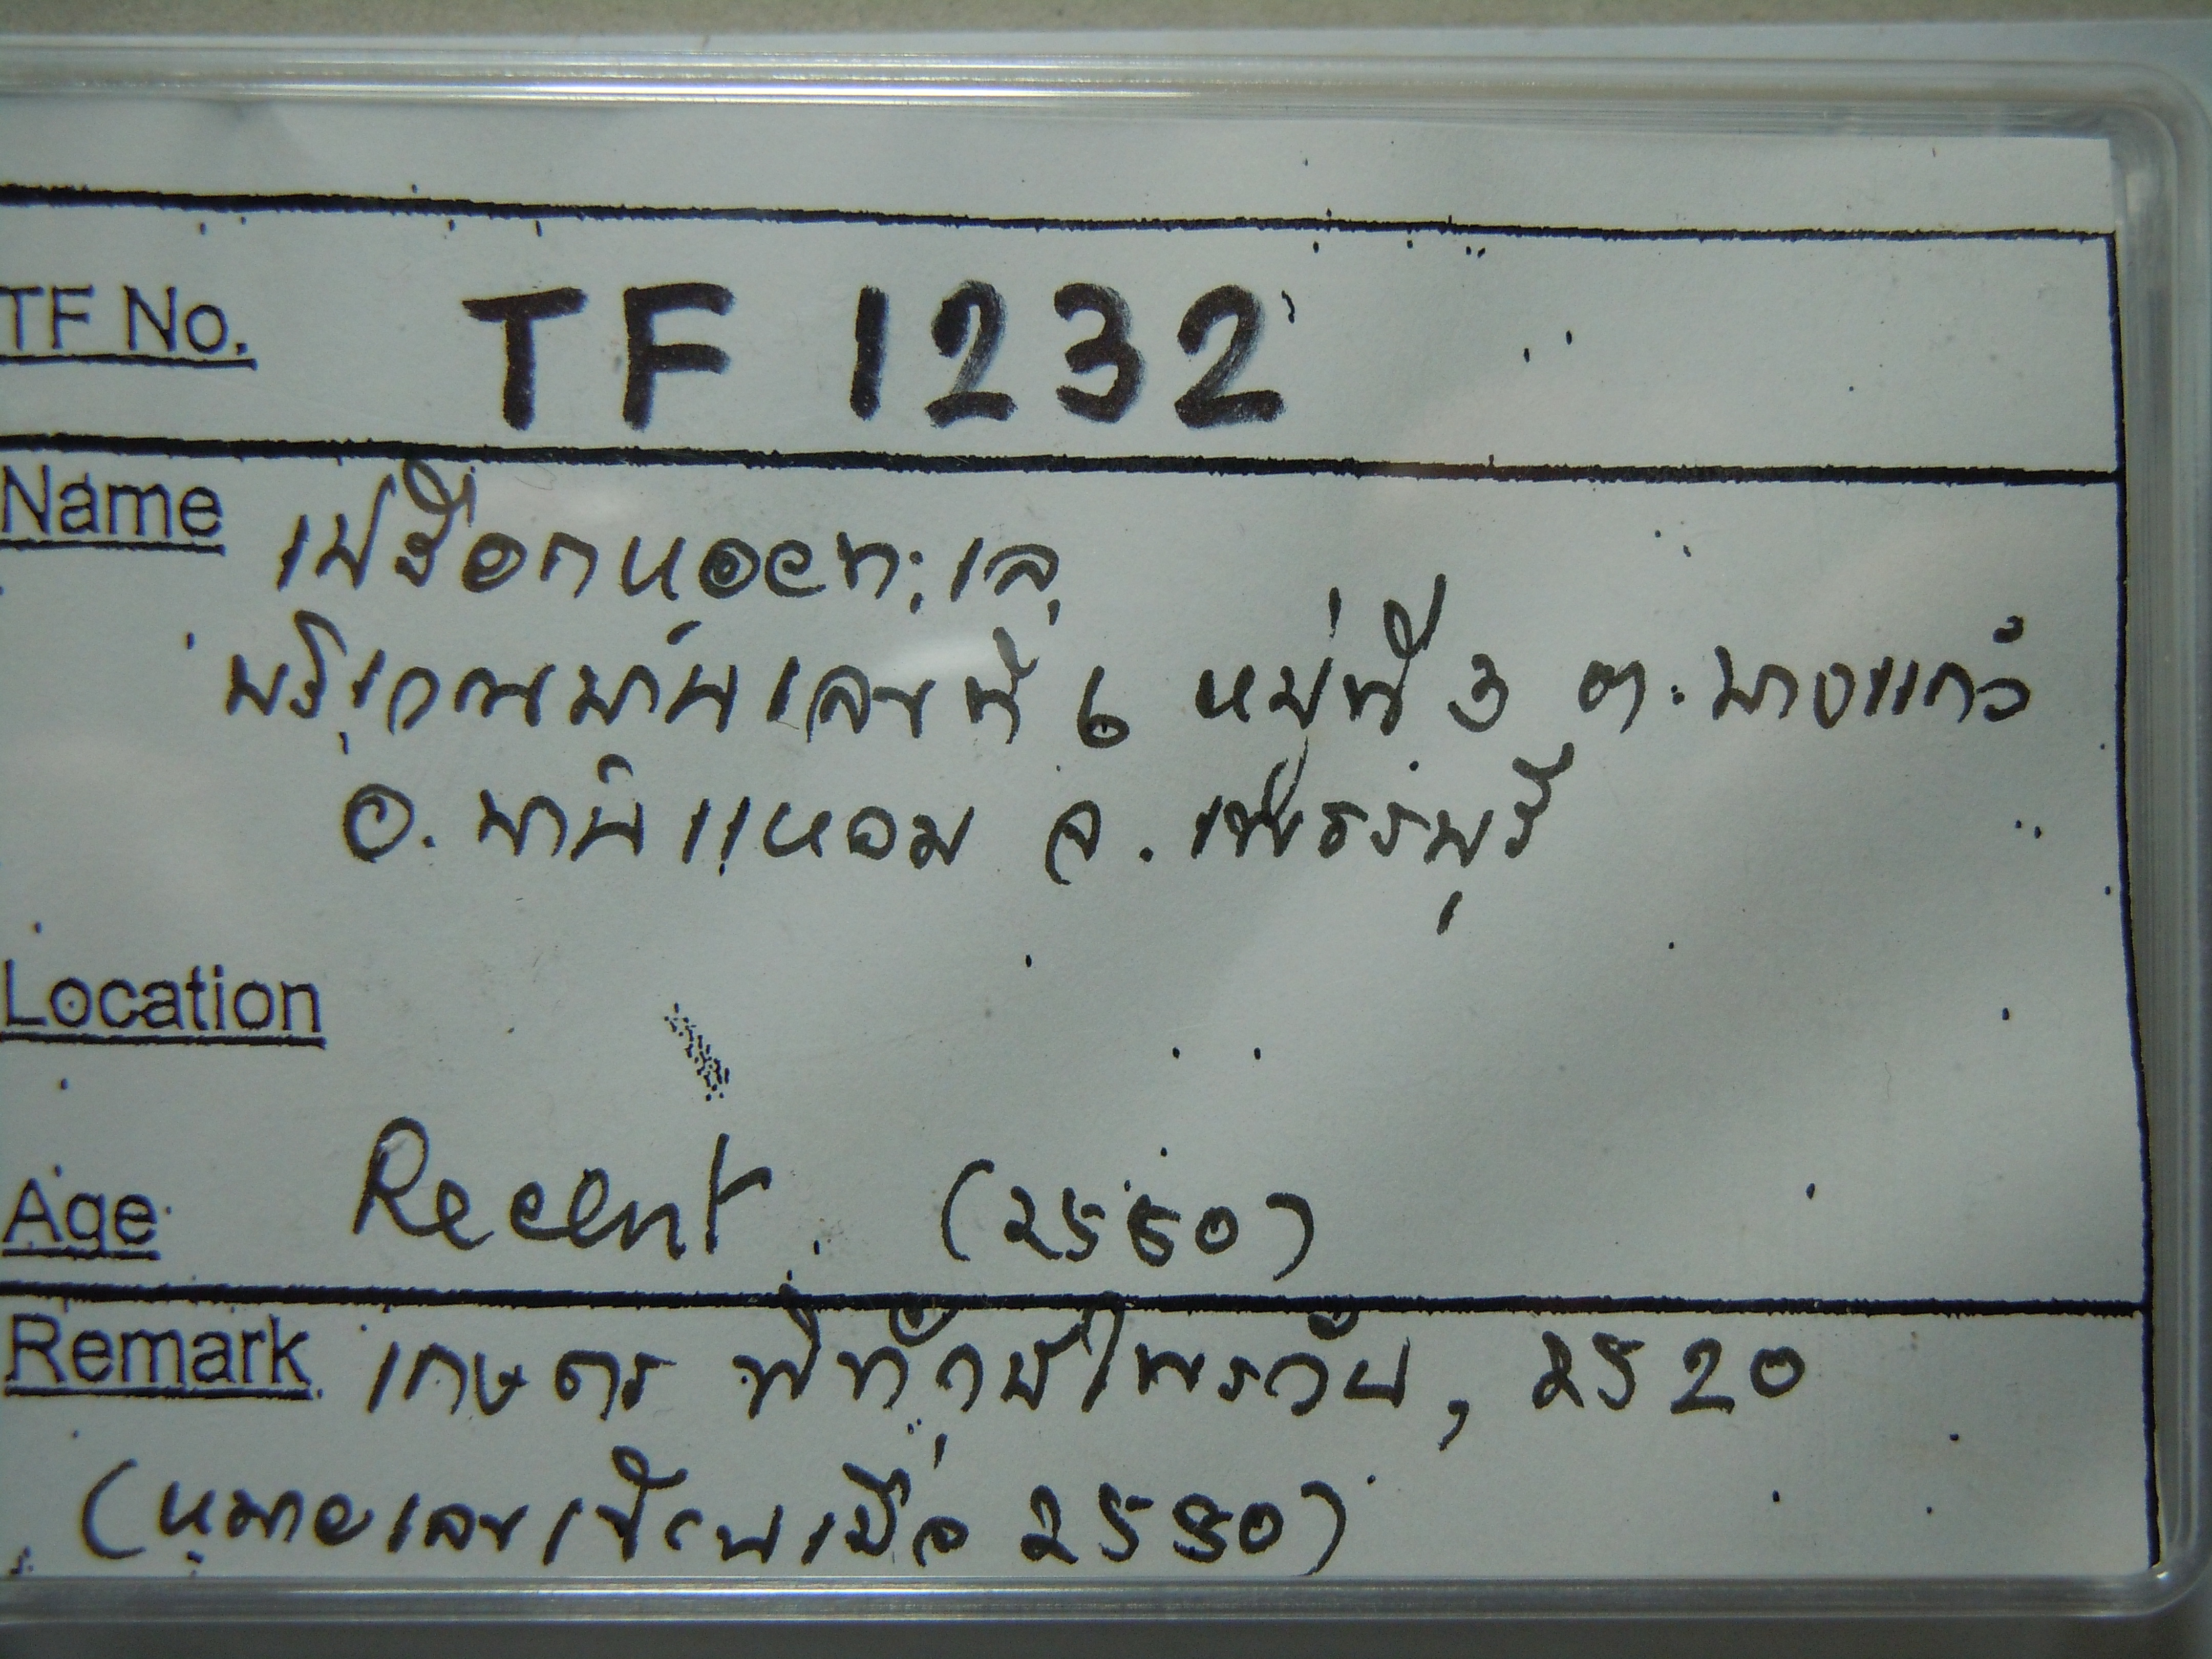 TF No. TF 1232
Name เปลือกหอยทะเล
บริเวณบ้านเลขที่ 6 หมู่ที่ 3 ต.บางแก้ว
อ.บ้านแหลม จ.เพชรบุรี
Location
Age Recent (2560)
Remark เกษตร พิทักษ์ไพรวัน, 2520
(หมายเลขเขียนเมื่อ 2530)